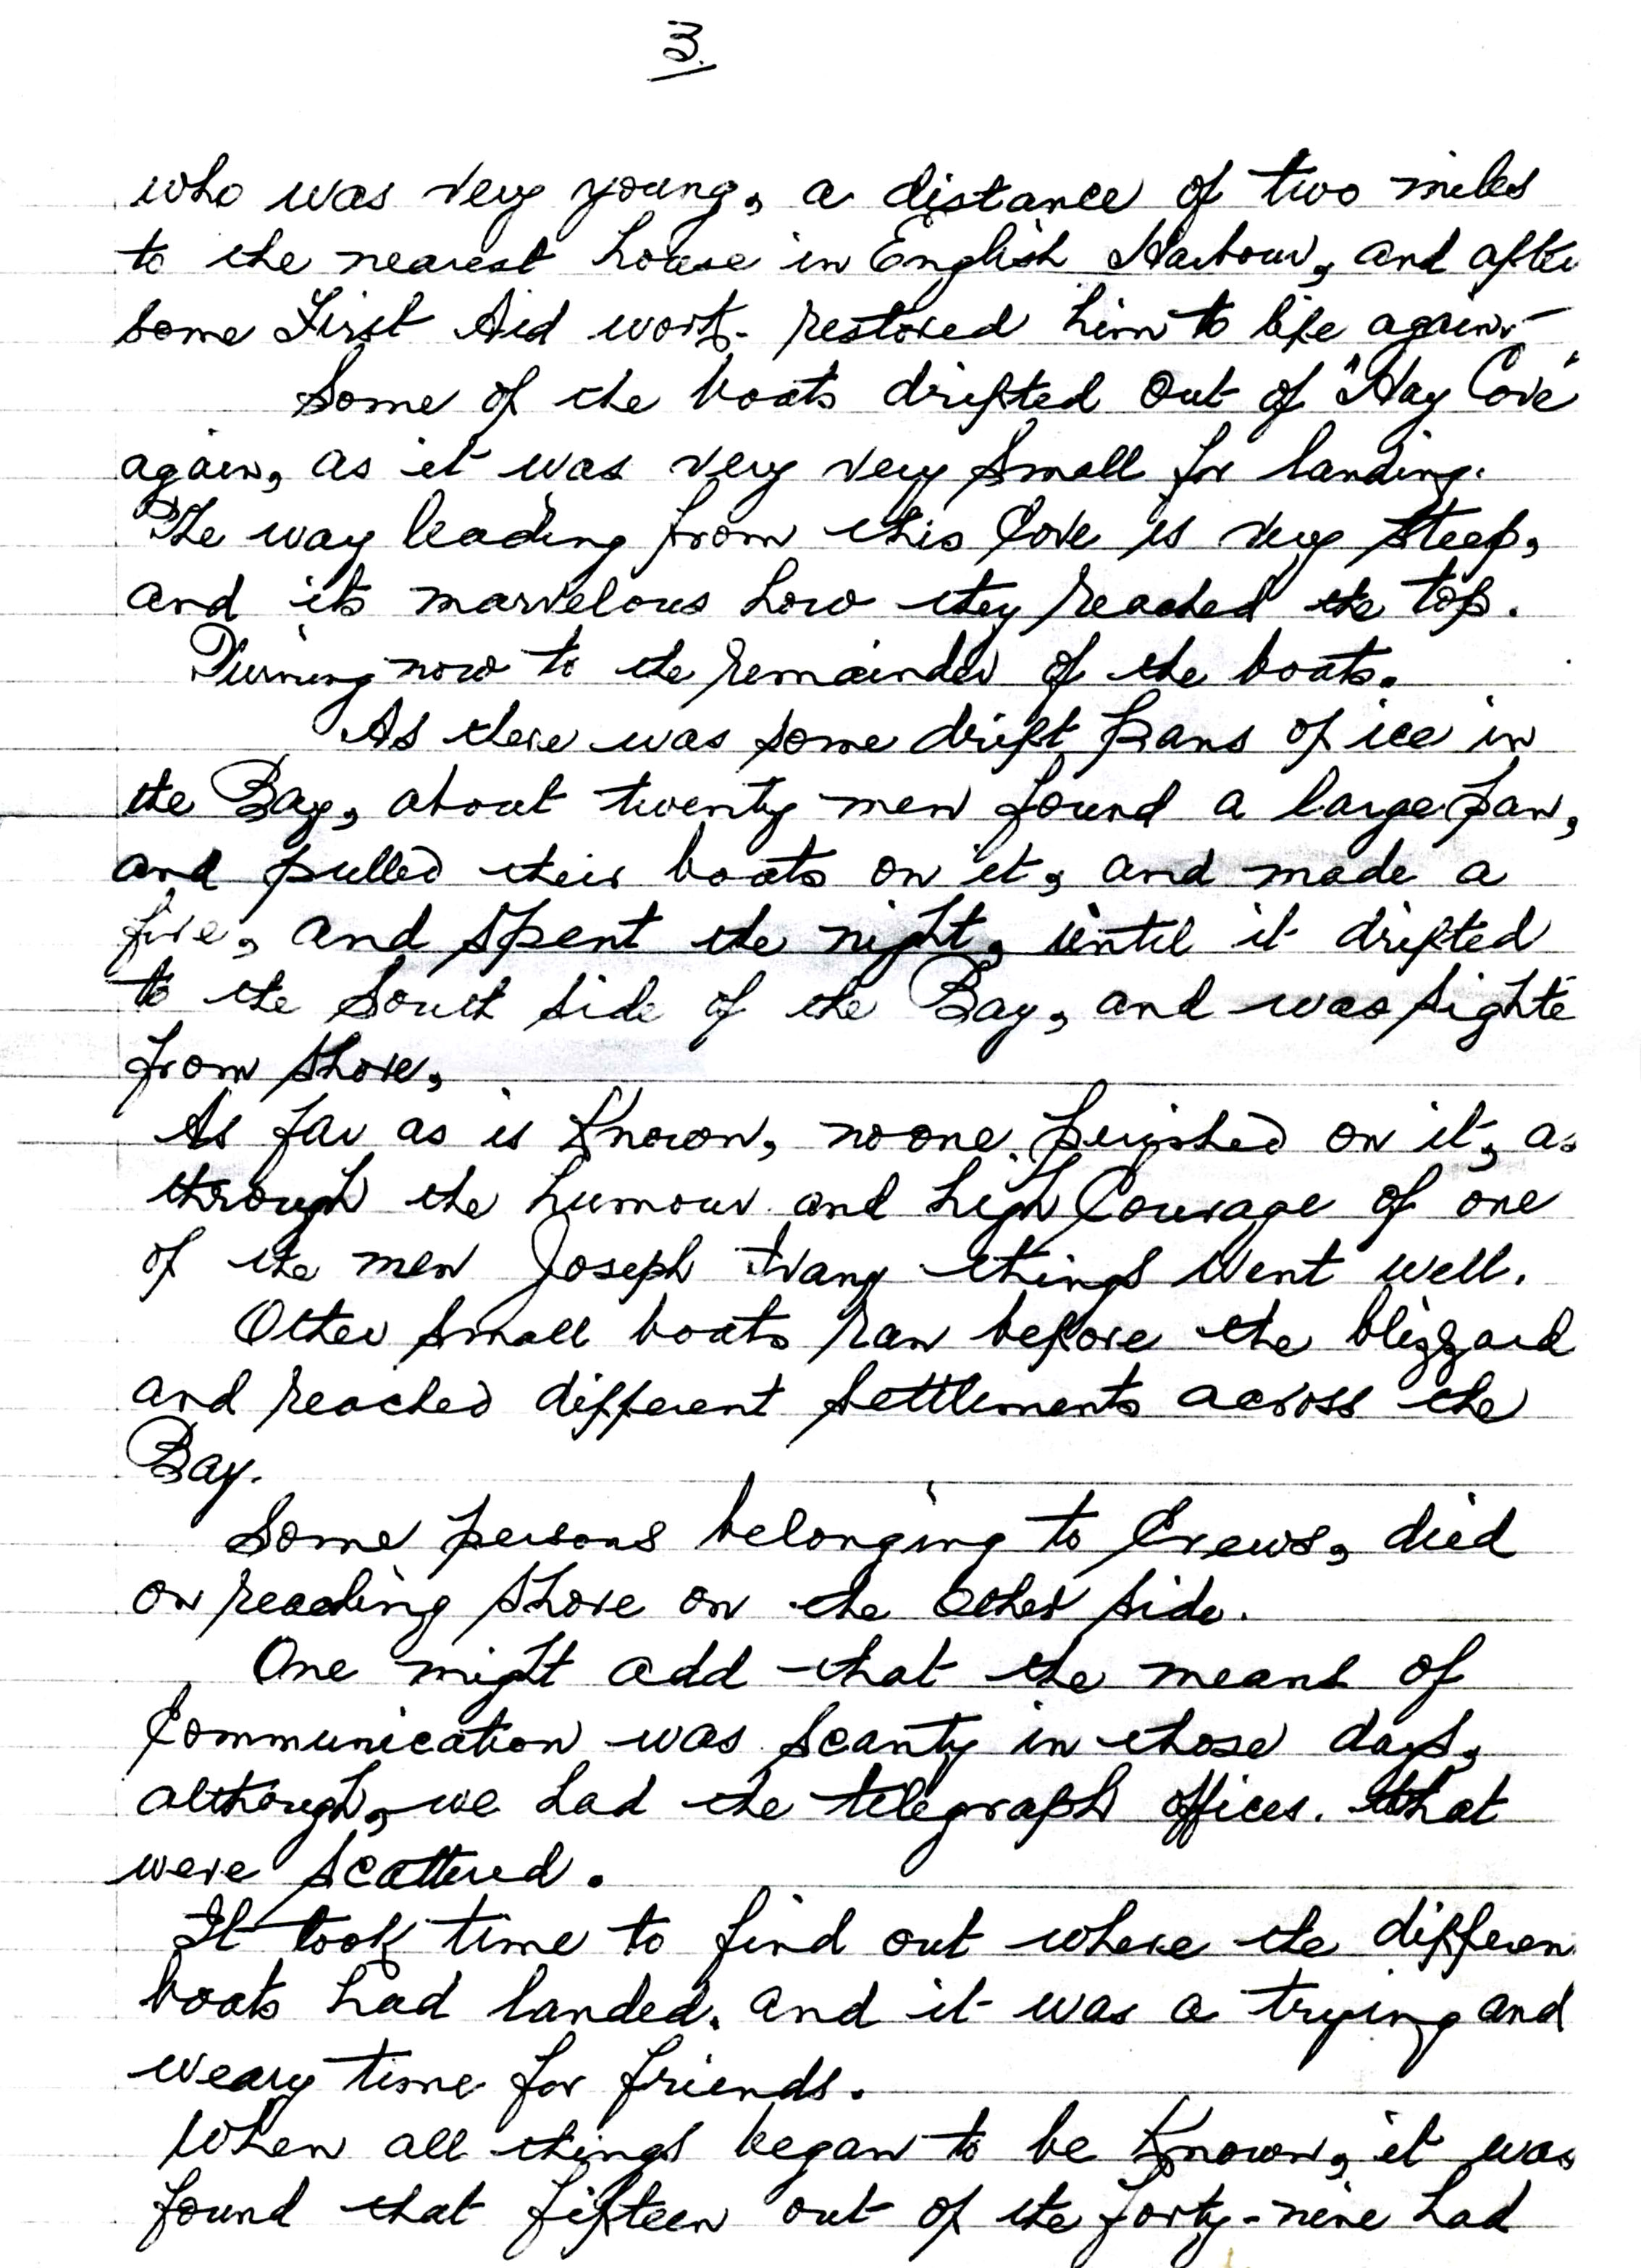 3.
who was very young, a distance of two miles
to the nearest house in English Harbour, and after
some First Aid work restored him to life again.
Some of the boats drifted out of "Hay Cove"
again, as it was very very small for landing.
The way leading from this Cove is very steep,
and its marvelous how they reached the top.
Turning now to the remainder of the boats.
As there was some drift pans of ice in
the Bay, about twenty men found a large pan,
and pulled their boats on it, and made a
fire, and spent the night, until it drifted
to the South side of the Bay, and was sighte
from shore,
As far as is Known, noone perished on it, as
through the humour and high Courage of one
of the men Joseph things went well.
Other small boats ran before the blizzard
and reached different settlements across the
Bay.
Some persons belonging to Crews, died
on reaching shore on the other side.
One might add that the means of
Communication was scanty in those days,
although, we had the telegraph offices. that
were scattered.
It took time to find out where the differen
boats had landed. and it was a trying and
weary time for friends.
When all things began to be Known, it was
found that fifteen out of the forty-nine had